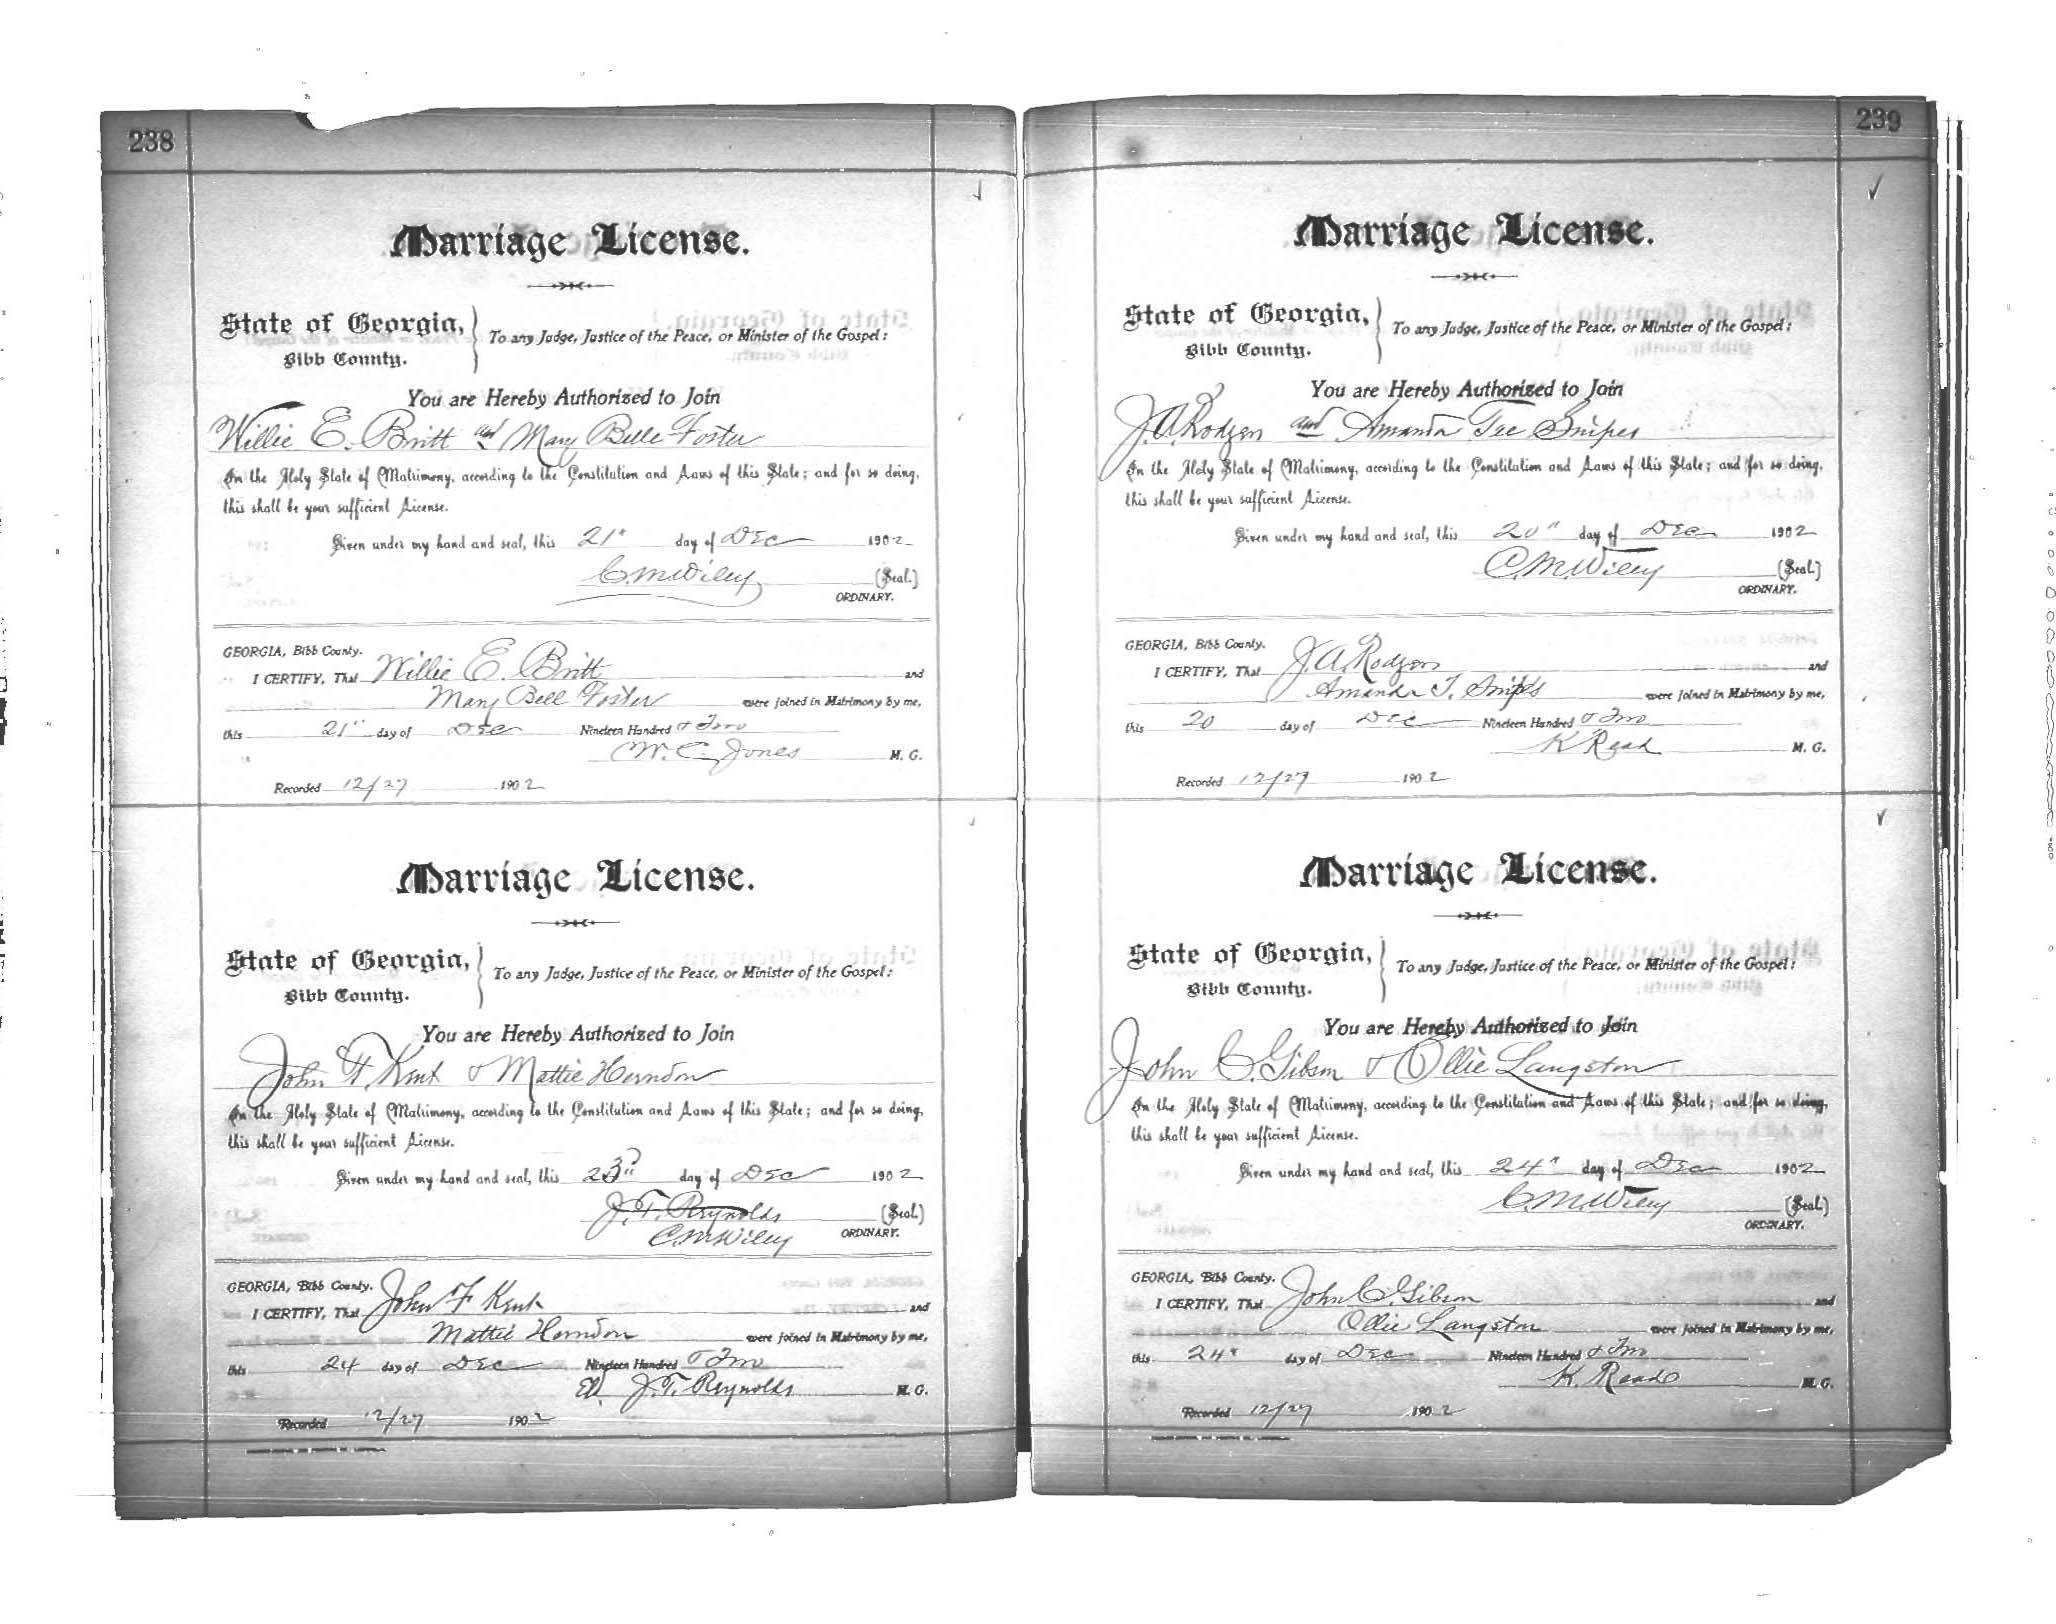 238
Marriage License.
State of Georgia,
Bibb County.
To any Judge, Justice of the Peace, or Minister of the Gospel:
You are Hereby Authorized to Join
Willie E. Britt and Mary Belle Foster
In the Holy State of Matrimony, according to the Constitution and Laws of this State; and for so doing,
this shall be your sufficient License.
Given under my hand and seal, this 21" day of Dec 1902
C. M. Wiley (Seal.)
ORDINARY.
GEORGIA, Bibb County.
I CERTIFY, That Willie E. Britt and
Mary Bell Foster were joined in Matrimony by me,
this 21" day of Dec Nineteen Hundred & Two
W. C. Jones M. G.
Recorded 12/27 1902
Marriage License.
State of Georgia,
Bibb County.
To any Judge, Justice of the Peace, or Minister of the Gospel:
You are Hereby Authorized to Join
John F. Kent & Mattie Herndon
In the Holy State of Matrimony, according to the Constitution and Laws of this State; and for so doing,
this shall be your sufficient License.
Given under my hand and seal, this 23" day of Dec 1902
J. T. Reynolds (Seal.)
C. M. Wiley ORDINARY.
GEORGIA, Bibb County.
I CERTIFY, That John F Kent and
Mattie Herndon were joined in Matrimony by me,
this 24 day of Dec Nineteen Hundred & Two
J. T. Reynolds M. G.
Recorded 12/27 1902
239
Marriage License.
State of Georgia,
Bibb County.
To any Judge, Justice of the Peace, or Minister of the Gospel:
You are Hereby Authorized to Join
J. A. Rodgers and Amanda Tee Snipes
In the Holy State of Matrimony, according to the Constitution and Laws of this State; and for so doing,
this shall be your sufficient License.
Given under my hand and seal, this 20" day of Dec 1902
C. M. Wiley (Seal.)
ORDINARY.
GEORGIA, Bibb County.
I CERTIFY, That J. A. Rodgers and
Amanda T. Snipes were joined in Matrimony by me,
this 20 day of Dec Nineteen Hundred & Two
K Read M. G.
Recorded 12/27 1902
Marriage License.
State of Georgia,
Bibb County.
To any Judge, Justice of the Peace, or Minister of the Gospel:
You are Hereby Authorized to Join
John C. Gibson & Ollie Langston
In the Holy State of Matrimony, according to the Constitution and Laws of this State; and for so doing,
this shall be your sufficient License.
Given under my hand and seal, this 24" day of Dec 1902
C. M. Wiley (Seal.)
ORDINARY.
GEORGIA, Bibb County.
I CERTIFY, That John C. Gibson and
Ollie Langston were joined in Matrimony by me,
this 24" day of Dec Nineteen Hundred & Two
K. Read M. G.
Recorded 12/27 1902